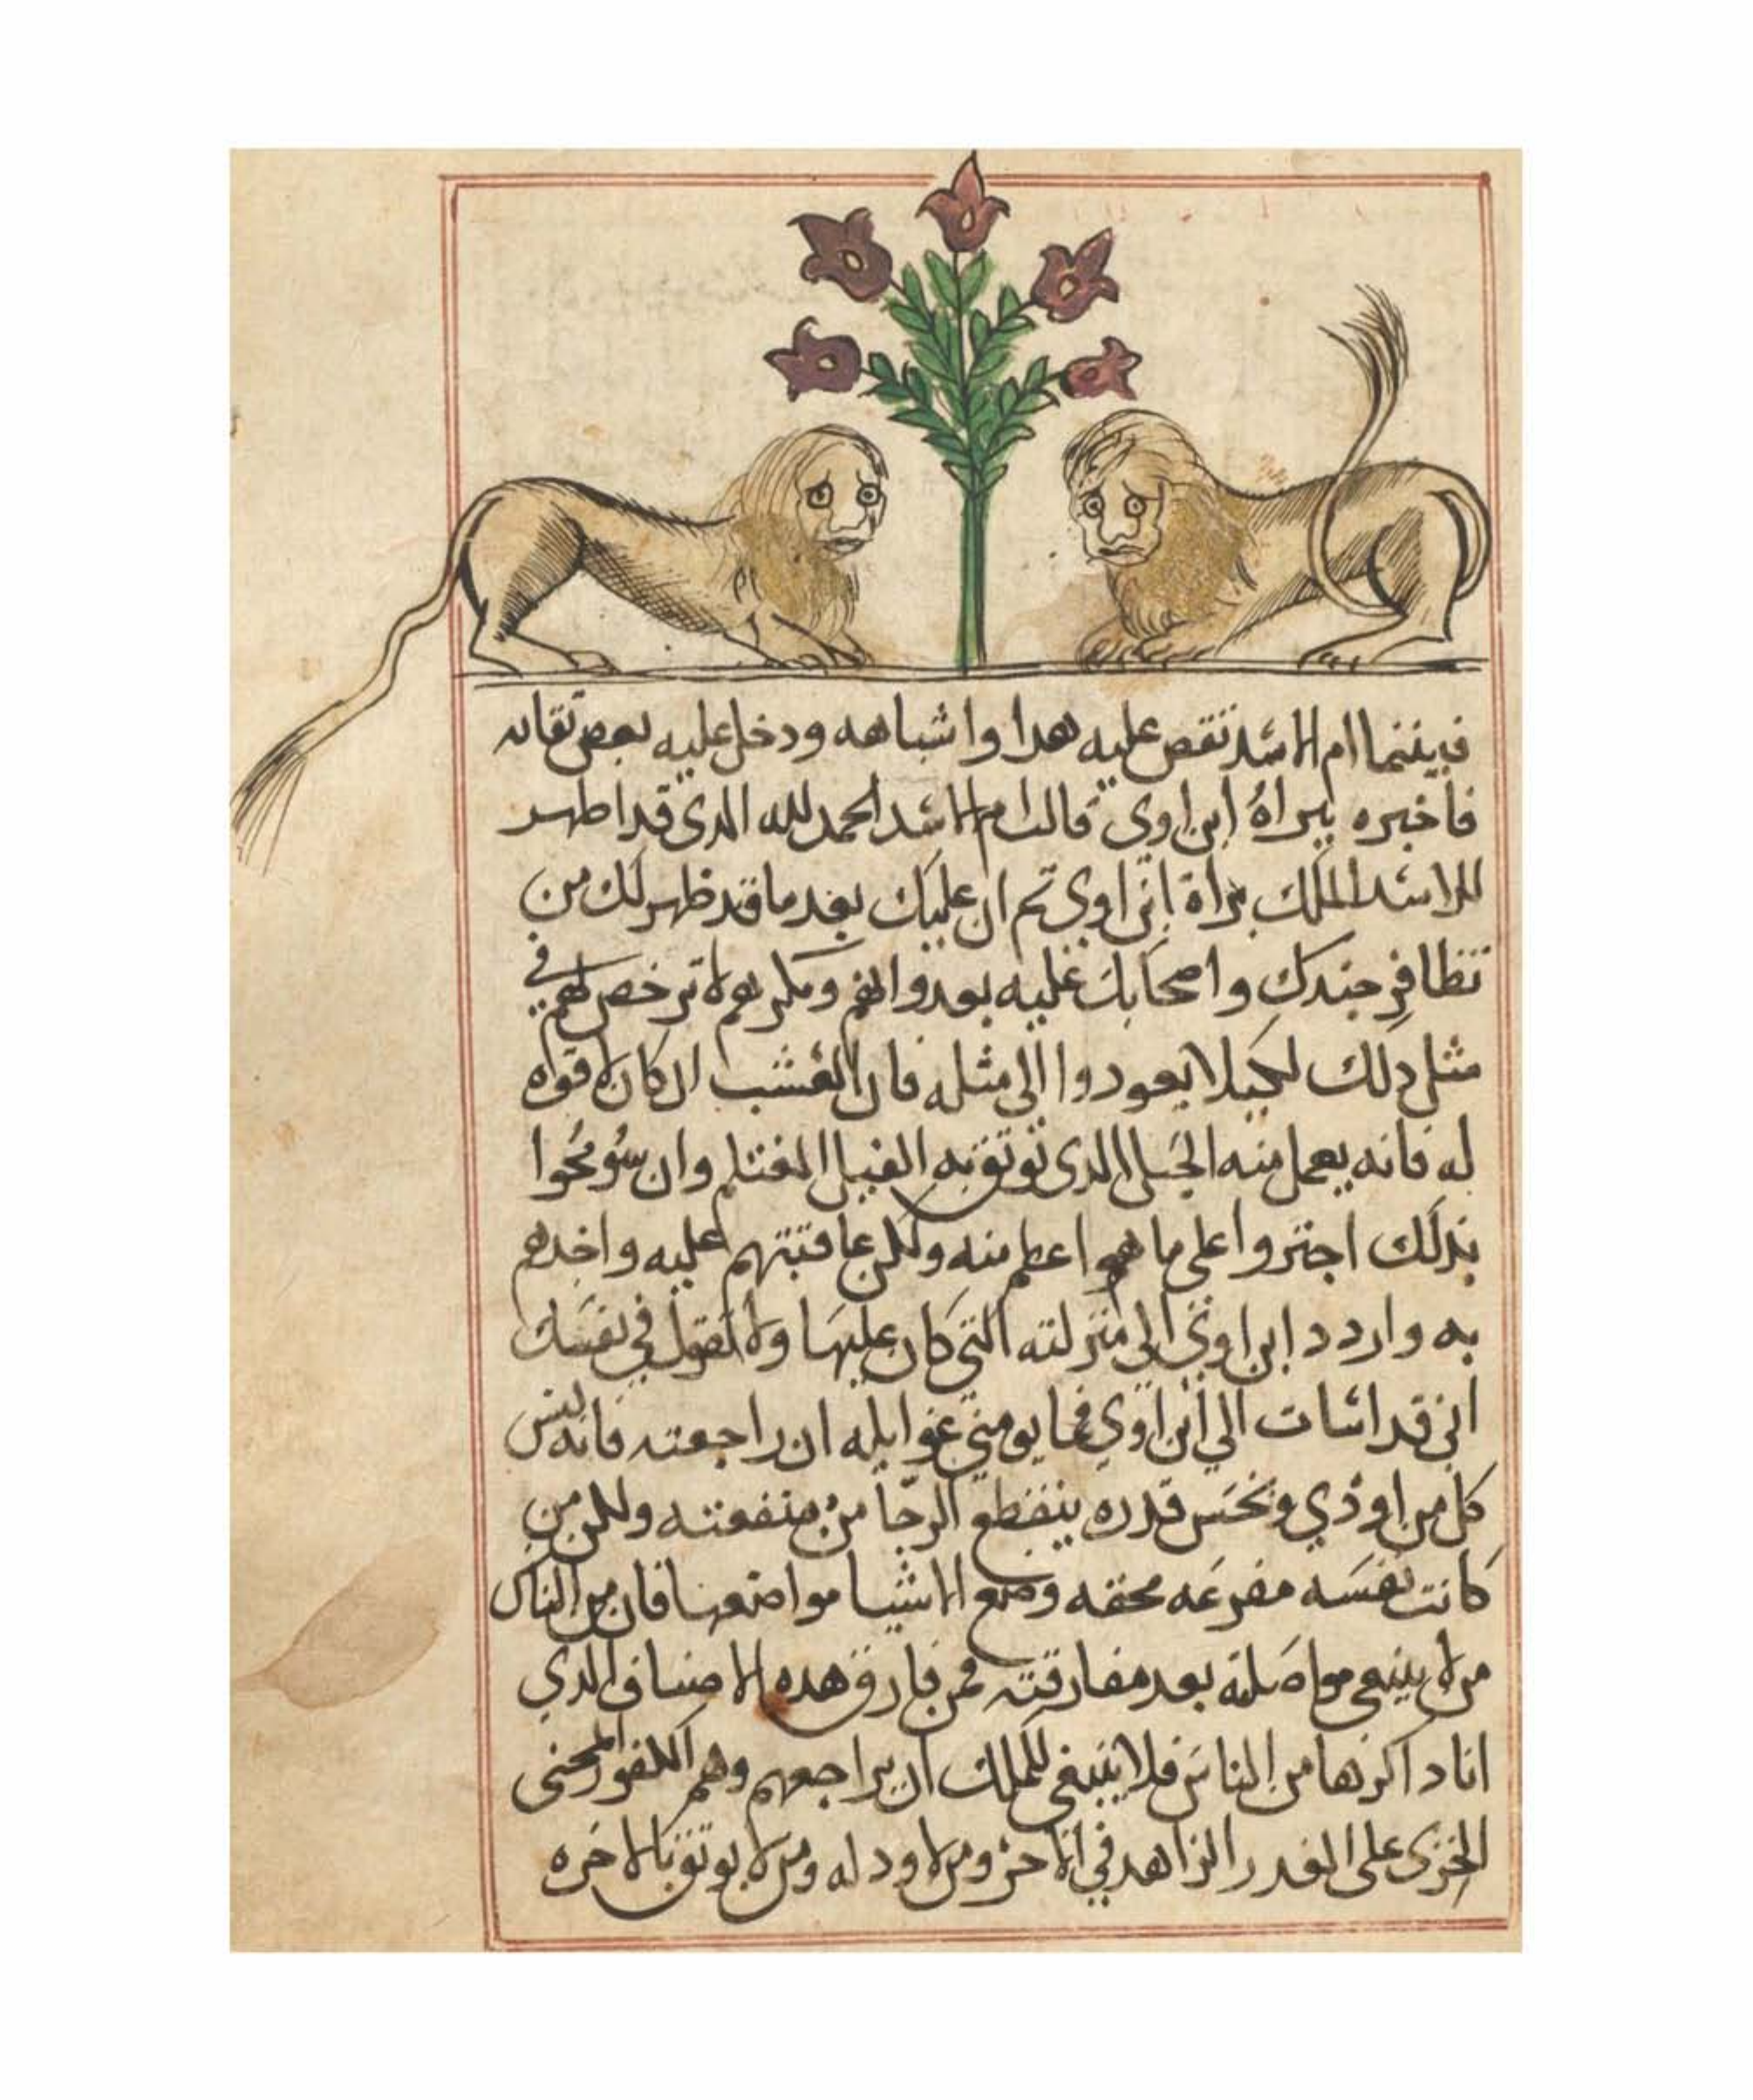 فبينما ام الاسد تقص عليه هدا واشباهه ودخل عليه بعص تقاته
فاخبره ببراه ابن اوى قالت ام الاسد الحمد لله الدى قد اطهر
للاسد الملك براة ابن اوى تم ان عليك بعد ما قد ظهر لك من
تظافر جندك واصحابك عليه بعدوانهم ومكرهم لا ترخص لهم في
مثل دلك لكيلا يعودوا الى مثله فان العشب ان كان لا قواه
له فانه يعمل منه الحبل الدى توتق به الفيل المغتلم وان سومحوا
بدلك اجتروا على ما هو اعطم منه ولكن عاقبتهم عليه واخدهم
به واردد ابن اوى الى منزلته التي كان عليها ولا تقول في نفسك
انى قد اسات الي ابن اوي فما يومني غوايله ان راجعته فانه ليس
كل من اودي وبخس قدره ينقطع الرجا من منفعته ولكن من
كانت نفسه محقه وضع الاشيا مواضعها فان من الناس
من لا ينبغى مواصلته بعد مفارقته فمن فارق هده الاصناف الدي
انا داكرها من الناس فلا ينبغى للملك ان يراجعهم وهم الكفور
على الغدر الزاهد في ومن لا ود له ومن لا يوتق بالاخره